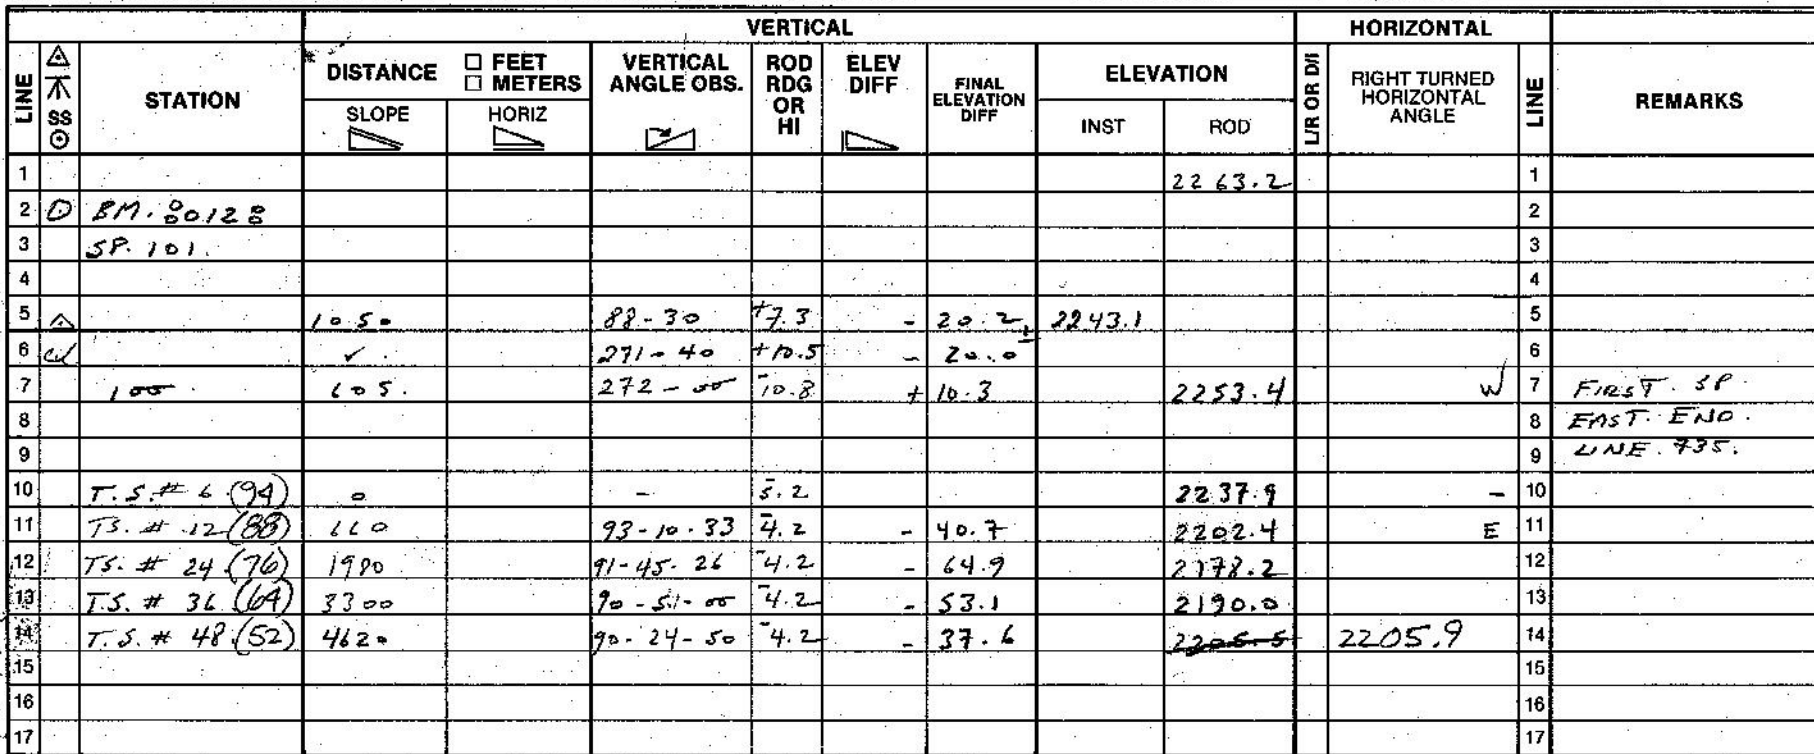 VERTICAL HORIZONTAL
LINE SS STATION DISTANCE □ FEET □ METERS SLOPE HORIZ VERTICAL ANGLE OBS. ROD RDG OR HI ELEV DIFF FINAL ELEVATION DIFF ELEVATION INST ROD L/R OR D/I RIGHT TURNED HORIZONTAL ANGLE LINE REMARKS
1 2263.2 1
2 BM. 2
3 SP. 101. 3
4 4
5 1050 88-30 +7.3 - 20.2 2243.1 5
6 ✓ 271-40 +10.5 - 20.0 6
7 100 605. 272-00 -10.8 + 10.3 2253.4 W 7 FIRST. SP.
8 8 EAST. END.
9 9 LINE. 735.
10 T.S.# 6 (94) 0 - -5.2 2237.9 - 10
11 TS. # 12 (88) 660 93-10-33 -4.2 - 40.7 2202.4 E 11
12 TS. # 24 (76) 1980 91-45-26 -4.2 - 64.9 2178.2 12
13 T.S. # 36 (64) 3300 90-51-00 -4.2 - 53.1 2190.0 13
14 T.S. # 48 (52) 4620 90-24-50 -4.2 - 37.6 2205.5 2205.9 14
15 15
16 16
17 17